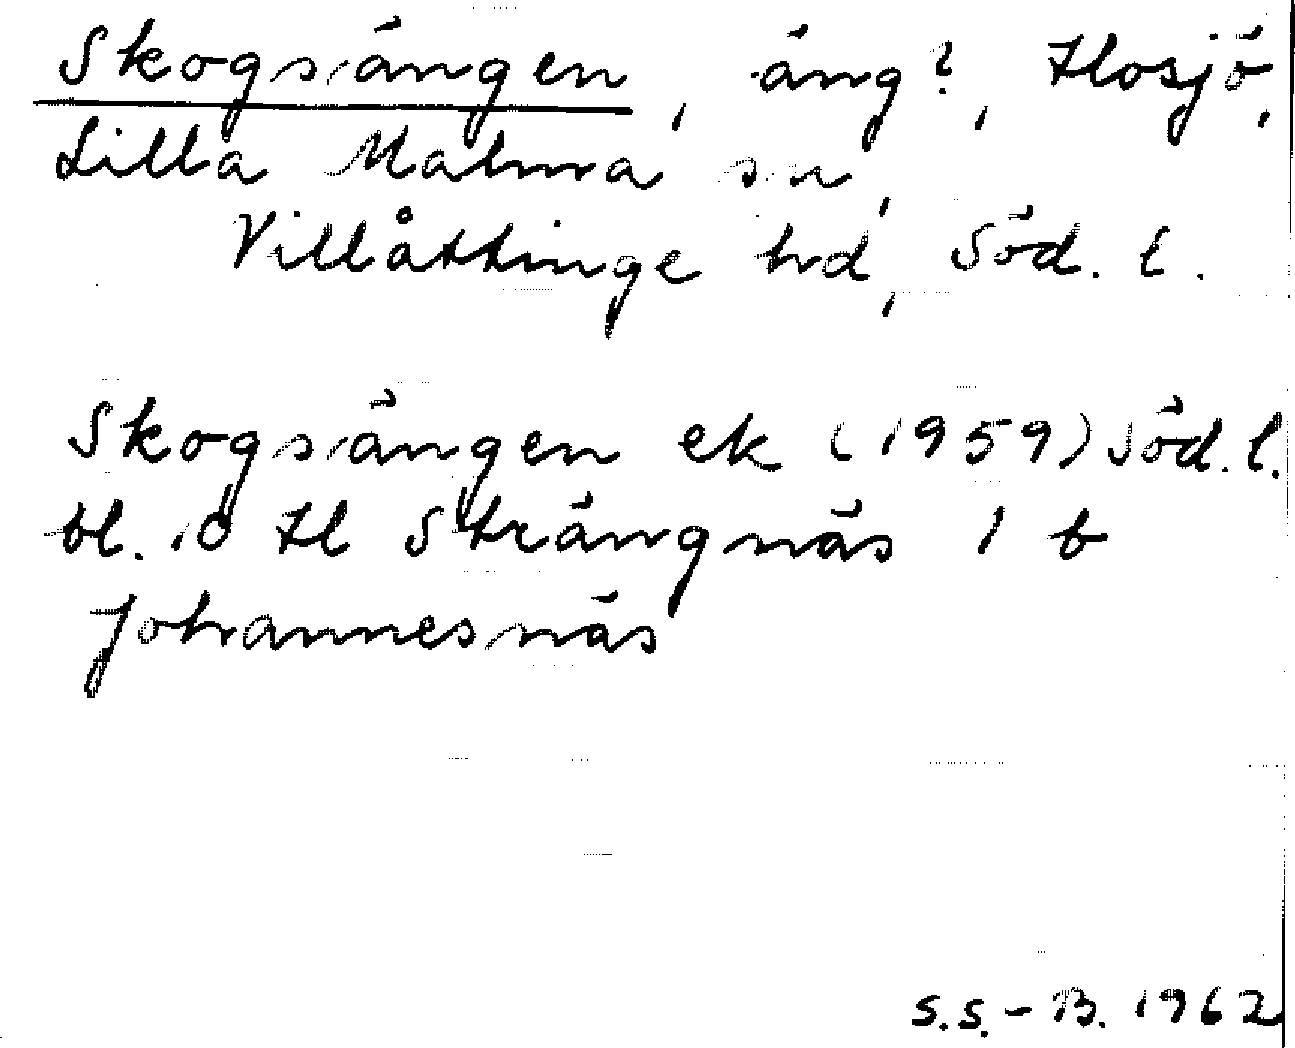 Skogsängen, äng?, Hosjö,
Lilla Malma sn,
Villåttinge hd, Söd. l.
Skogsängen ek (1959) Söd. l.
bl. 10 H Strängnäs 1 b
Johannesnäs
S.S.-B. 1962